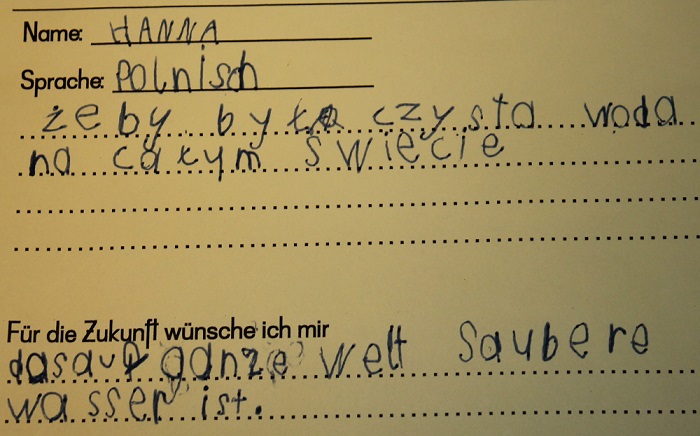 Name: HANNA
Sprache: POLNisch
żeby była czysta woda
na całym świecie
Für die Zukunft wünsche ich mir
dasauf ganze welt saubere
wasser ist.